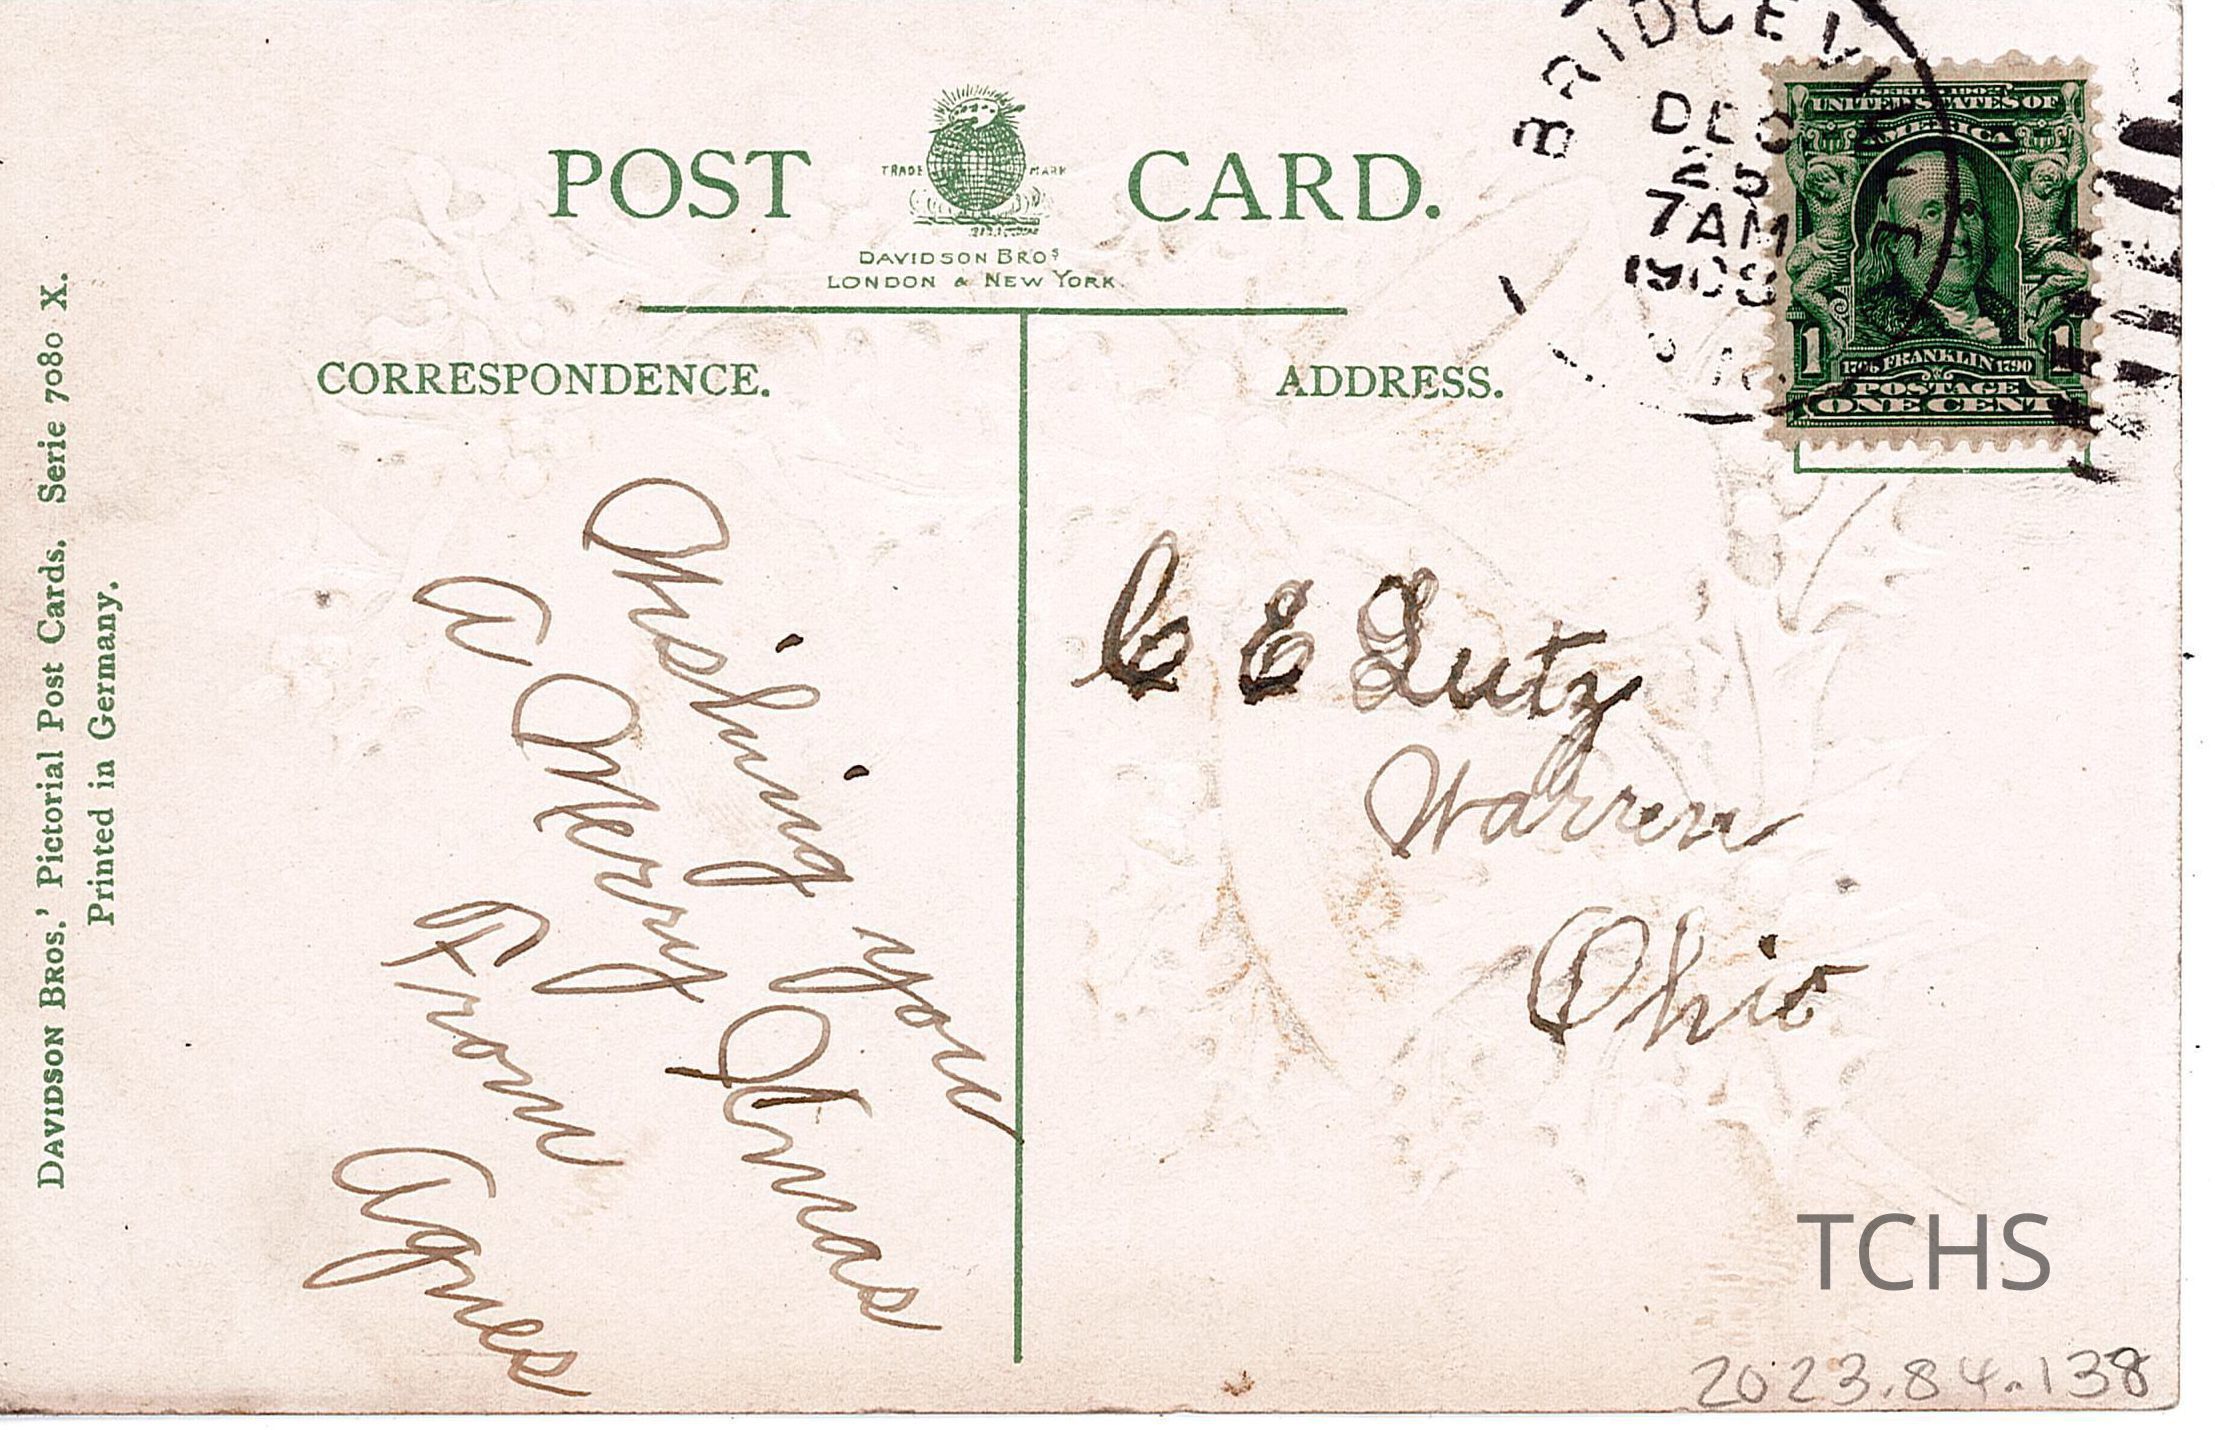 POST CARD.
TRADE MARK
DAVIDSON BROS
LONDON & NEW YORK.
BRIDGEVILLE
DEC
25
7AM
SERIES 1902
UNITED STATES OF
AMERICA
1 1
1706 FRANKLIN 1790
POSTAGE
ONE CENT
CORRESPONDENCE.
ADDRESS.
DAVIDSON BROS.' Pictorial Post Cards. Serie 7080 X.
Printed in Germany.
Wishing you
a Merry Xmas
From
Agnes
C E Lutz
Warren
Ohio
TCHS
2023.84.138